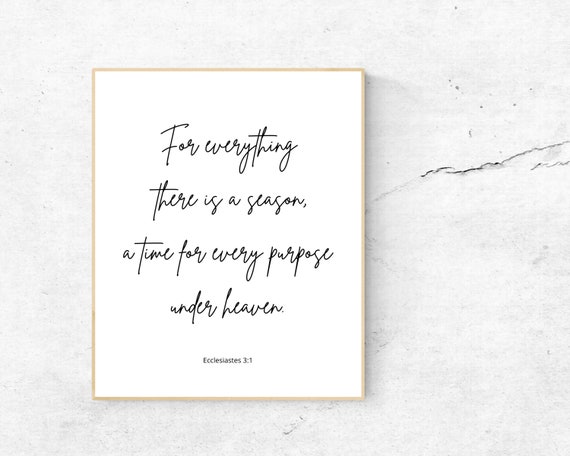 For everything
there is a season,
a time for every purpose
under heaven.
Ecclesiastes 3:1